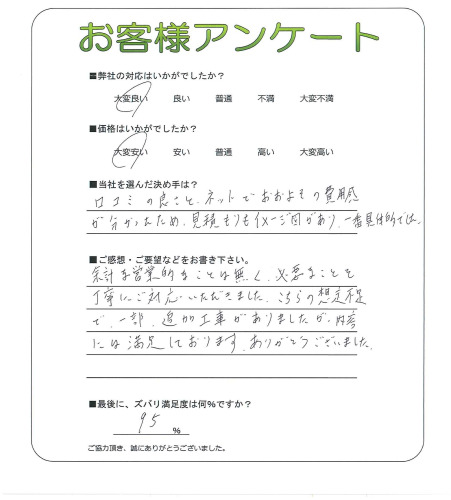 お客様アンケート
■弊社の対応はいかがでしたか?
大変良い 良い 普通 不満 大変不満
■価格はいかがでしたか?
大変安い 安い 普通 高い 大変高い
■当社を選んだ決め手は?
口コミの良さと、ネットでおおよその費用感
が分かったため。見積もりもイメージ図があり、一番具体的でした。
■ご感想・ご要望などをお書き下さい。
余計な営業的なことは無く、必要なことを
丁寧にご対応いただきました。こちらの想定不足
で、一部、追加工事がありましたが、内容
には満足しております。ありがとうございました。
■最後に、ズバリ満足度は何%ですか?
95 %
ご協力頂き、誠にありがとうございました。